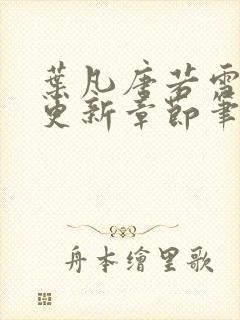 葉凡唐若雪
更新章節筆
舟本繪里歌